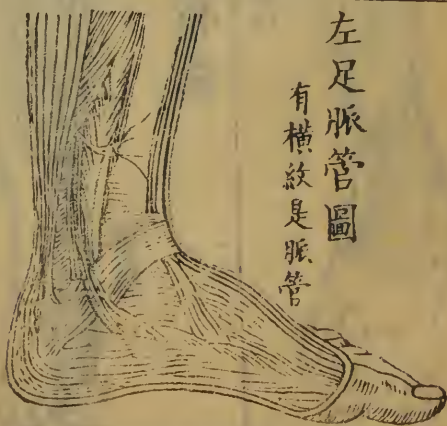 左足脈管圖
有橫紋是脈管